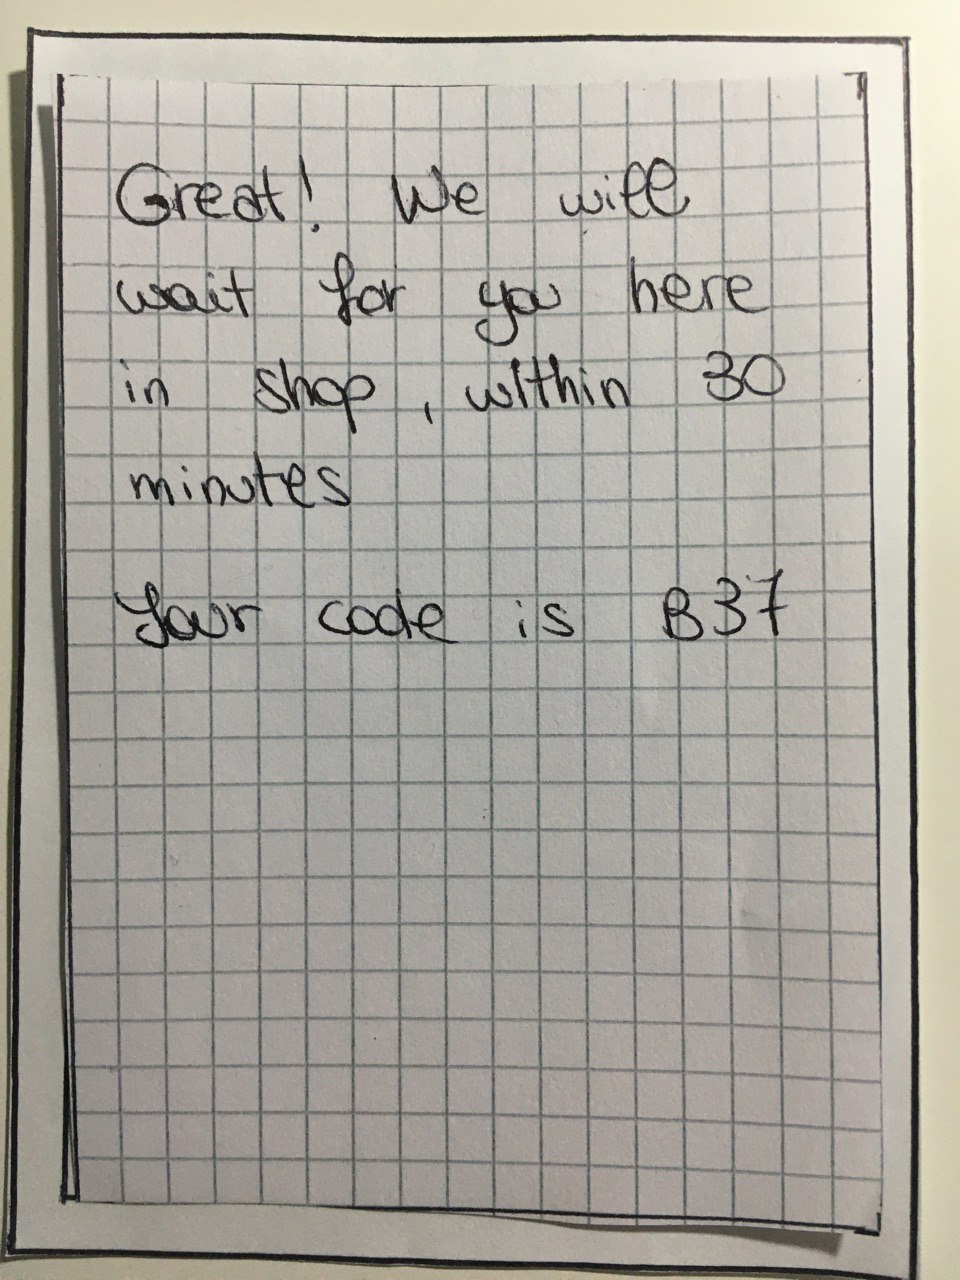 Great! We will
wait for you here
in shop, within 30
minutes
Your code is B37